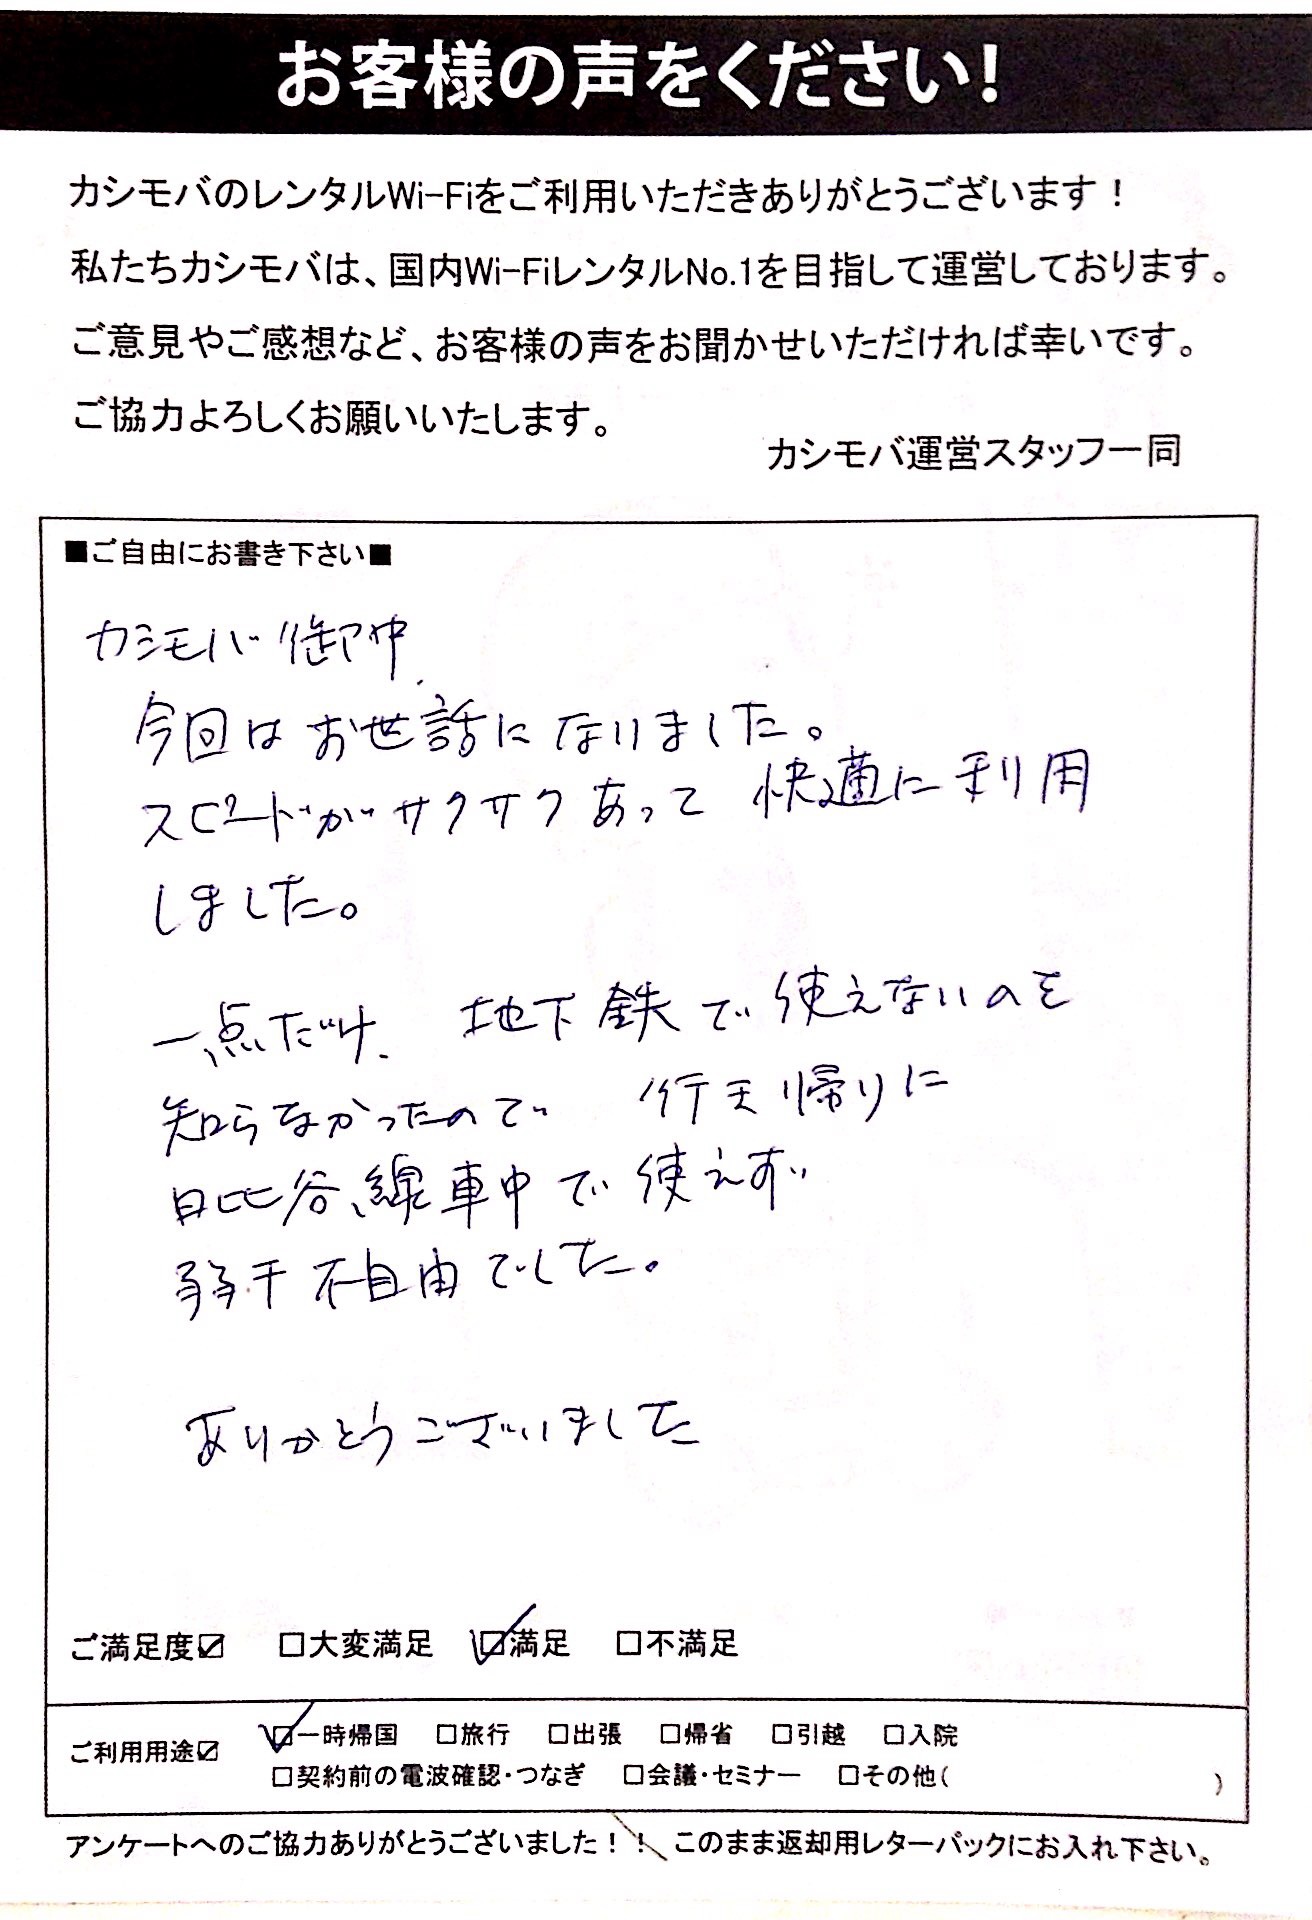 お客様の声をください!
カシモバのレンタルWi-Fiをご利用いただきありがとうございます！
私たちカシモバは、国内Wi-FiレンタルNo.1を目指して運営しております。
ご意見やご感想など、お客様の声をお聞かせいただければ幸いです。
ご協力よろしくお願いいたします。
カシモバ運営スタッフ一同
■ご自由にお書き下さい■
カシモバ 御中
今回はお世話になりました。
スピードがサクサクあって 快適に利用
しました。
一点だけ、地下鉄で使えないのを
知らなかったので 行き帰りに
日比谷線車中で使えず
若干不自由でした。
ありがとうございました
ご満足度☑ □大変満足 ☑満足 □不満足
ご利用用途☑ ☑一時帰国 □旅行 □出張 □帰省 □引越 □入院
□契約前の電波確認・つなぎ □会議・セミナー □その他( )
アンケートへのご協力ありがとうございました！！ このまま返却用レターパックにお入れ下さい。